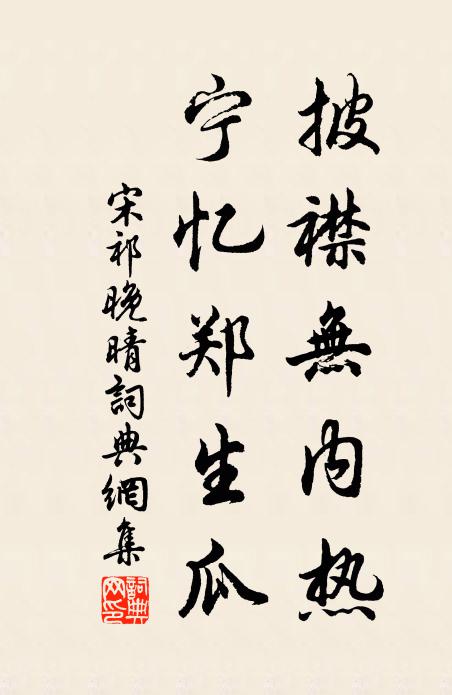 披襟無内热
宁忆郑生瓜
宋祁晚晴詞典網集
詞典网印